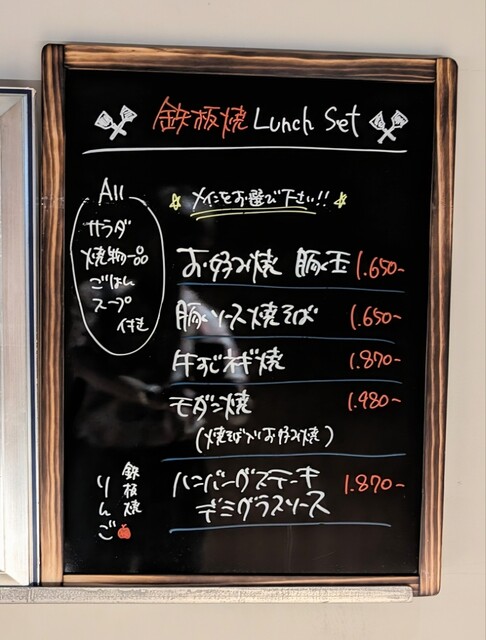 鉄板焼 Lunch Set
All
サラダ
焼物一品
ごはん
スープ
付き
メインをお選び下さい!!
お好み焼 豚玉 1.650-
豚ソース焼そば 1.650-
牛すじネギ焼 1.870-
モダン焼 1.980-
(焼そば入りお好み焼)
ハンバーグステーキ 1.870-
デミグラスソース
鉄板焼
りんご